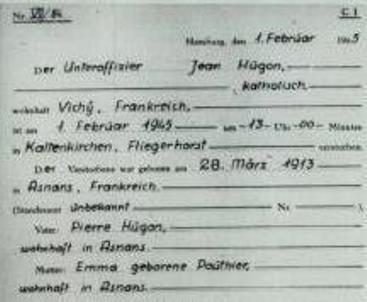 Nr. VII/ C I
Hamburg, den 1. Februar 1945
Der Unteroffizier Jean Hügon,
, katholisch,
wohnhaft Vichÿ, Frankreich,
ist am 1. Februar 1945 um -13- Uhr -00- Minuten
in Kaltenkirchen, Fliegerhorst verstorben.
Der Verstorbene war geboren am 28. März 1913
in Asnans, Frankreich.
(Standesamt unbekannt Nr. ).
Vater: Pierre Hügon,
wohnhaft in Asnans.
Mutter: Emma geborene Paüthier,
wohnhaft in Asnans.